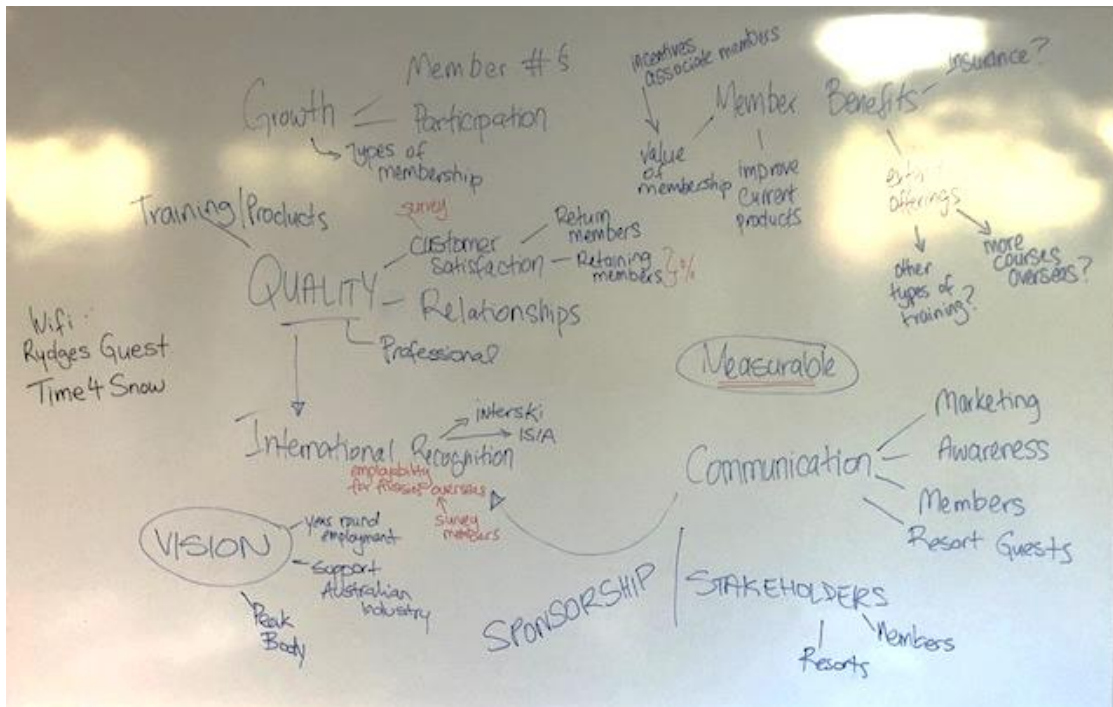 Growth
Member #'s
Participation
Types of
membership
incentives
associate members
Member Benefits
insurance?
value
of
membership
improve
current
products
extra
offerings
other
types of
training?
more
courses
overseas?
Training/Products
QUALITY
survey
customer
satisfaction
Return
members
Retaining
members
%
Relationships
Professional
Wifi:
Rydges Guest
Time4Snow
International Recognition
interski
ISIA
employability
for overseas
survey
members
Measurable
Communication
Marketing
Awareness
Members
Resort Guests
VISION
year round
employment
support
Australian
Industry
Peak
Body
SPONSORSHIP
STAKEHOLDERS
Resorts
Members